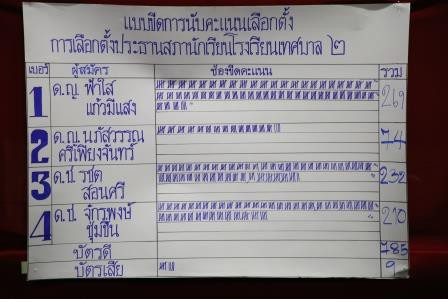 แบบขีดการนับคะแนนเลือกตั้ง
การเลือกตั้งประธานสภานักเรียนโรงเรียนเทศบาล ๒
เบอร์ ผู้สมัคร ช่องขีดคะแนน รวม
1 ด.ญ. ฟ้าใส แก้วมีแสง 269
2 ด.ญ. นภัสวรรณ ศรีเฟื่องจันทร์ 74
3 ด.ช. รชต สอนศรี 232
4 ด.ช. จักรพงษ์ ชุ่มชื่น 210
บัตรดี 785
บัตรเสีย 9